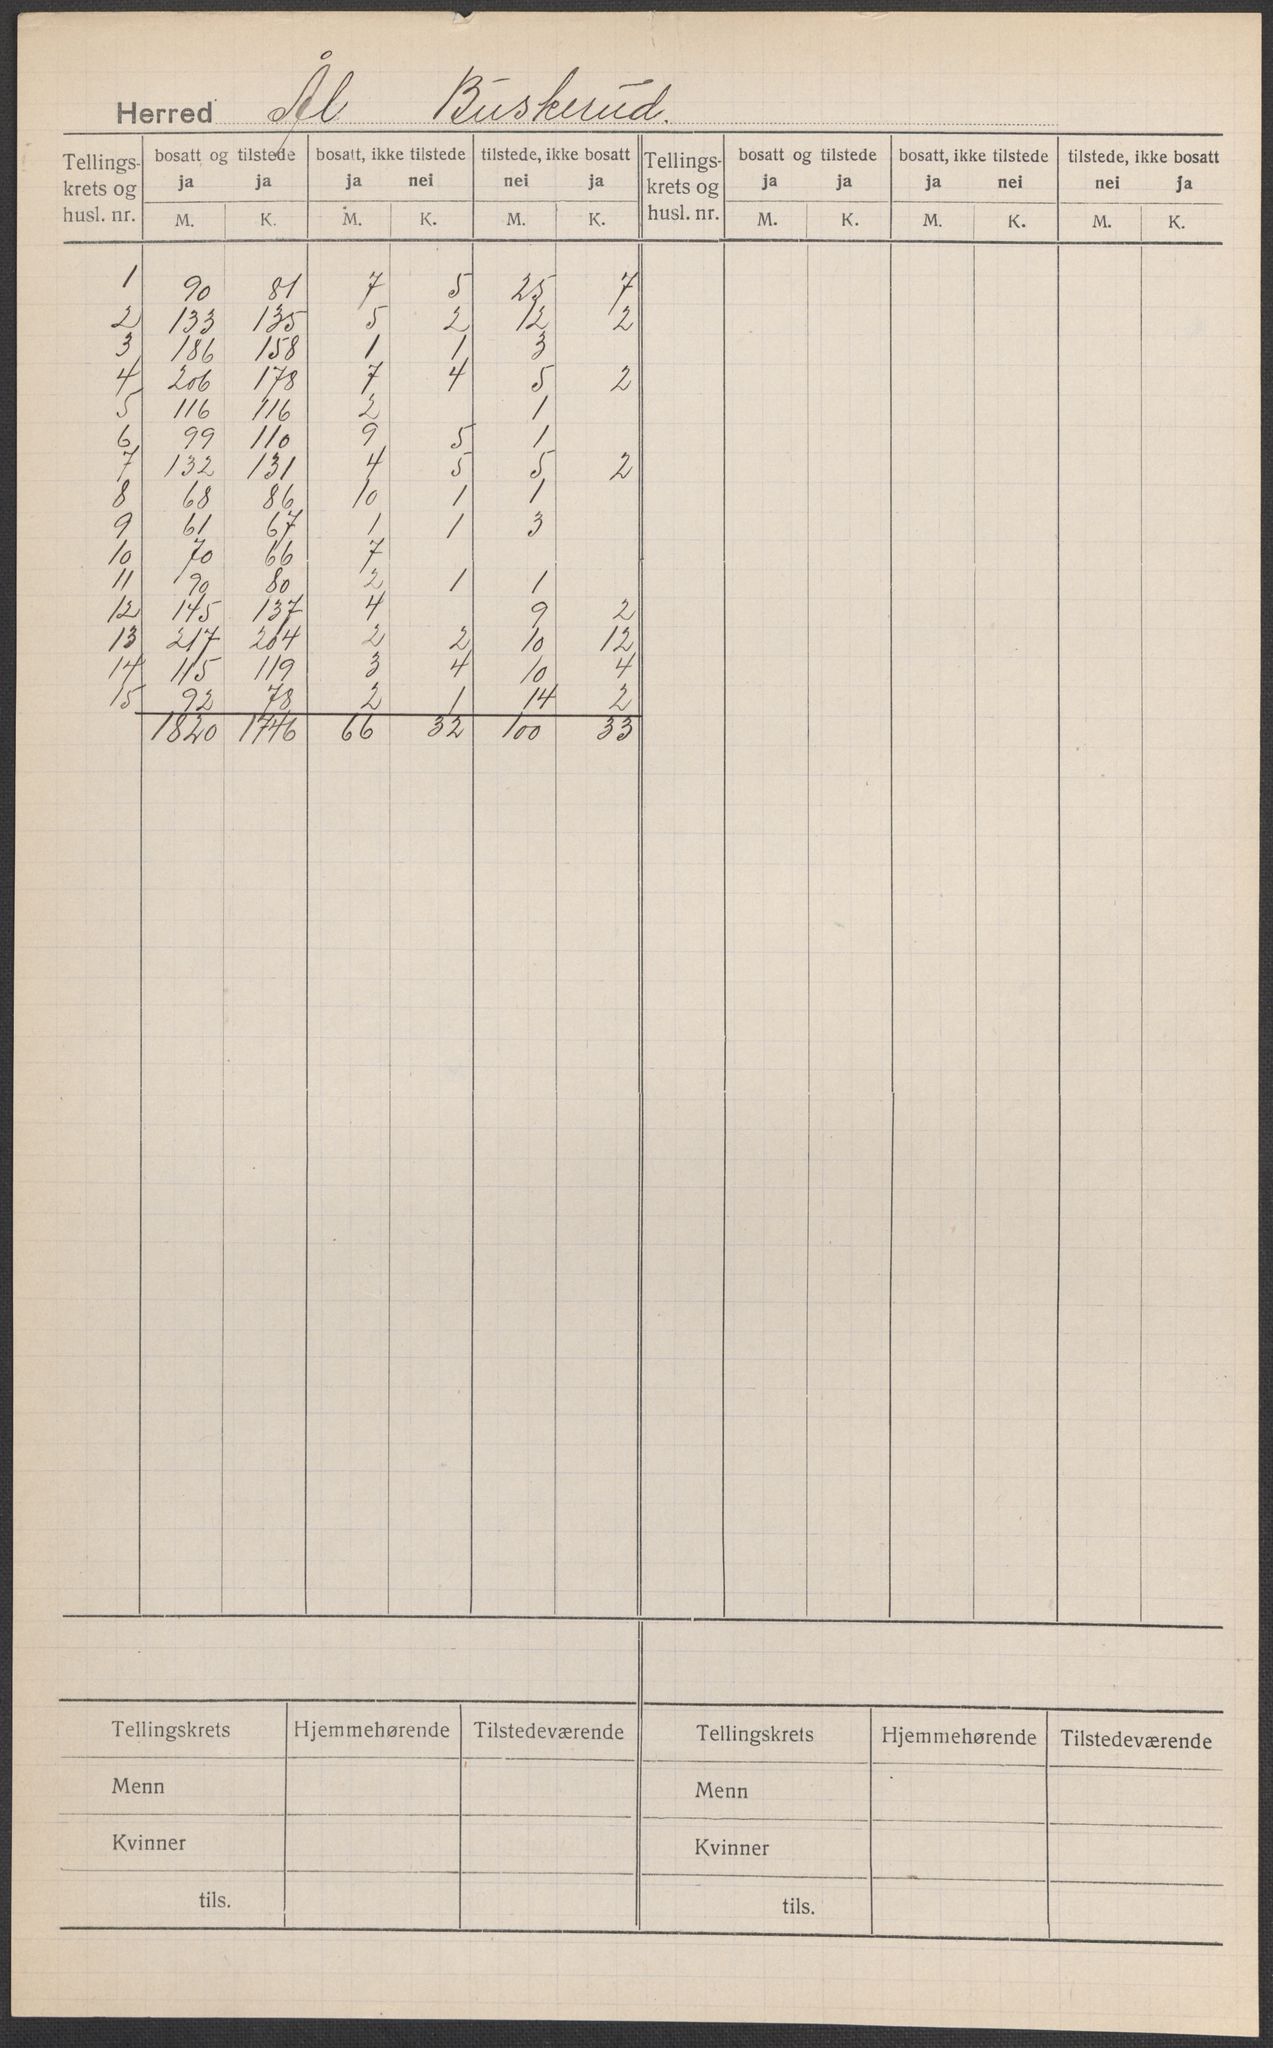 Herred Ål Buskerud.
Tellings- krets og husl. nr. | bosatt og tilstede | bosatt, ikke tilstede | tilstede, ikke bosatt | Tellings- krets og husl. nr. | bosatt og tilstede | bosatt, ikke tilstede | tilstede, ikke bosatt
ja ja ja nei nei ja ja ja ja nei nei ja
M. K. M. K. M. K. M. K. M. K. M. K.
1 90 81 7 5 25 7
2 133 135 5 2 12 2
3 186 158 1 1 3
4 206 178 7 4 5 2
5 116 116 2 1
6 99 110 9 5 1
7 132 131 4 5 5 2
8 68 86 10 1 1
9 61 67 1 1 3
10 70 66 7
11 90 80 2 1 1
12 145 137 4 9 2
13 217 204 2 2 10 12
14 115 119 3 4 10 4
15 92 78 2 1 14 2
1820 1746 66 32 100 33
Tellingskrets Hjemmehørende Tilstedeværende Tellingskrets Hjemmehørende Tilstedeværende
Menn Menn
Kvinner Kvinner
tils. tils.